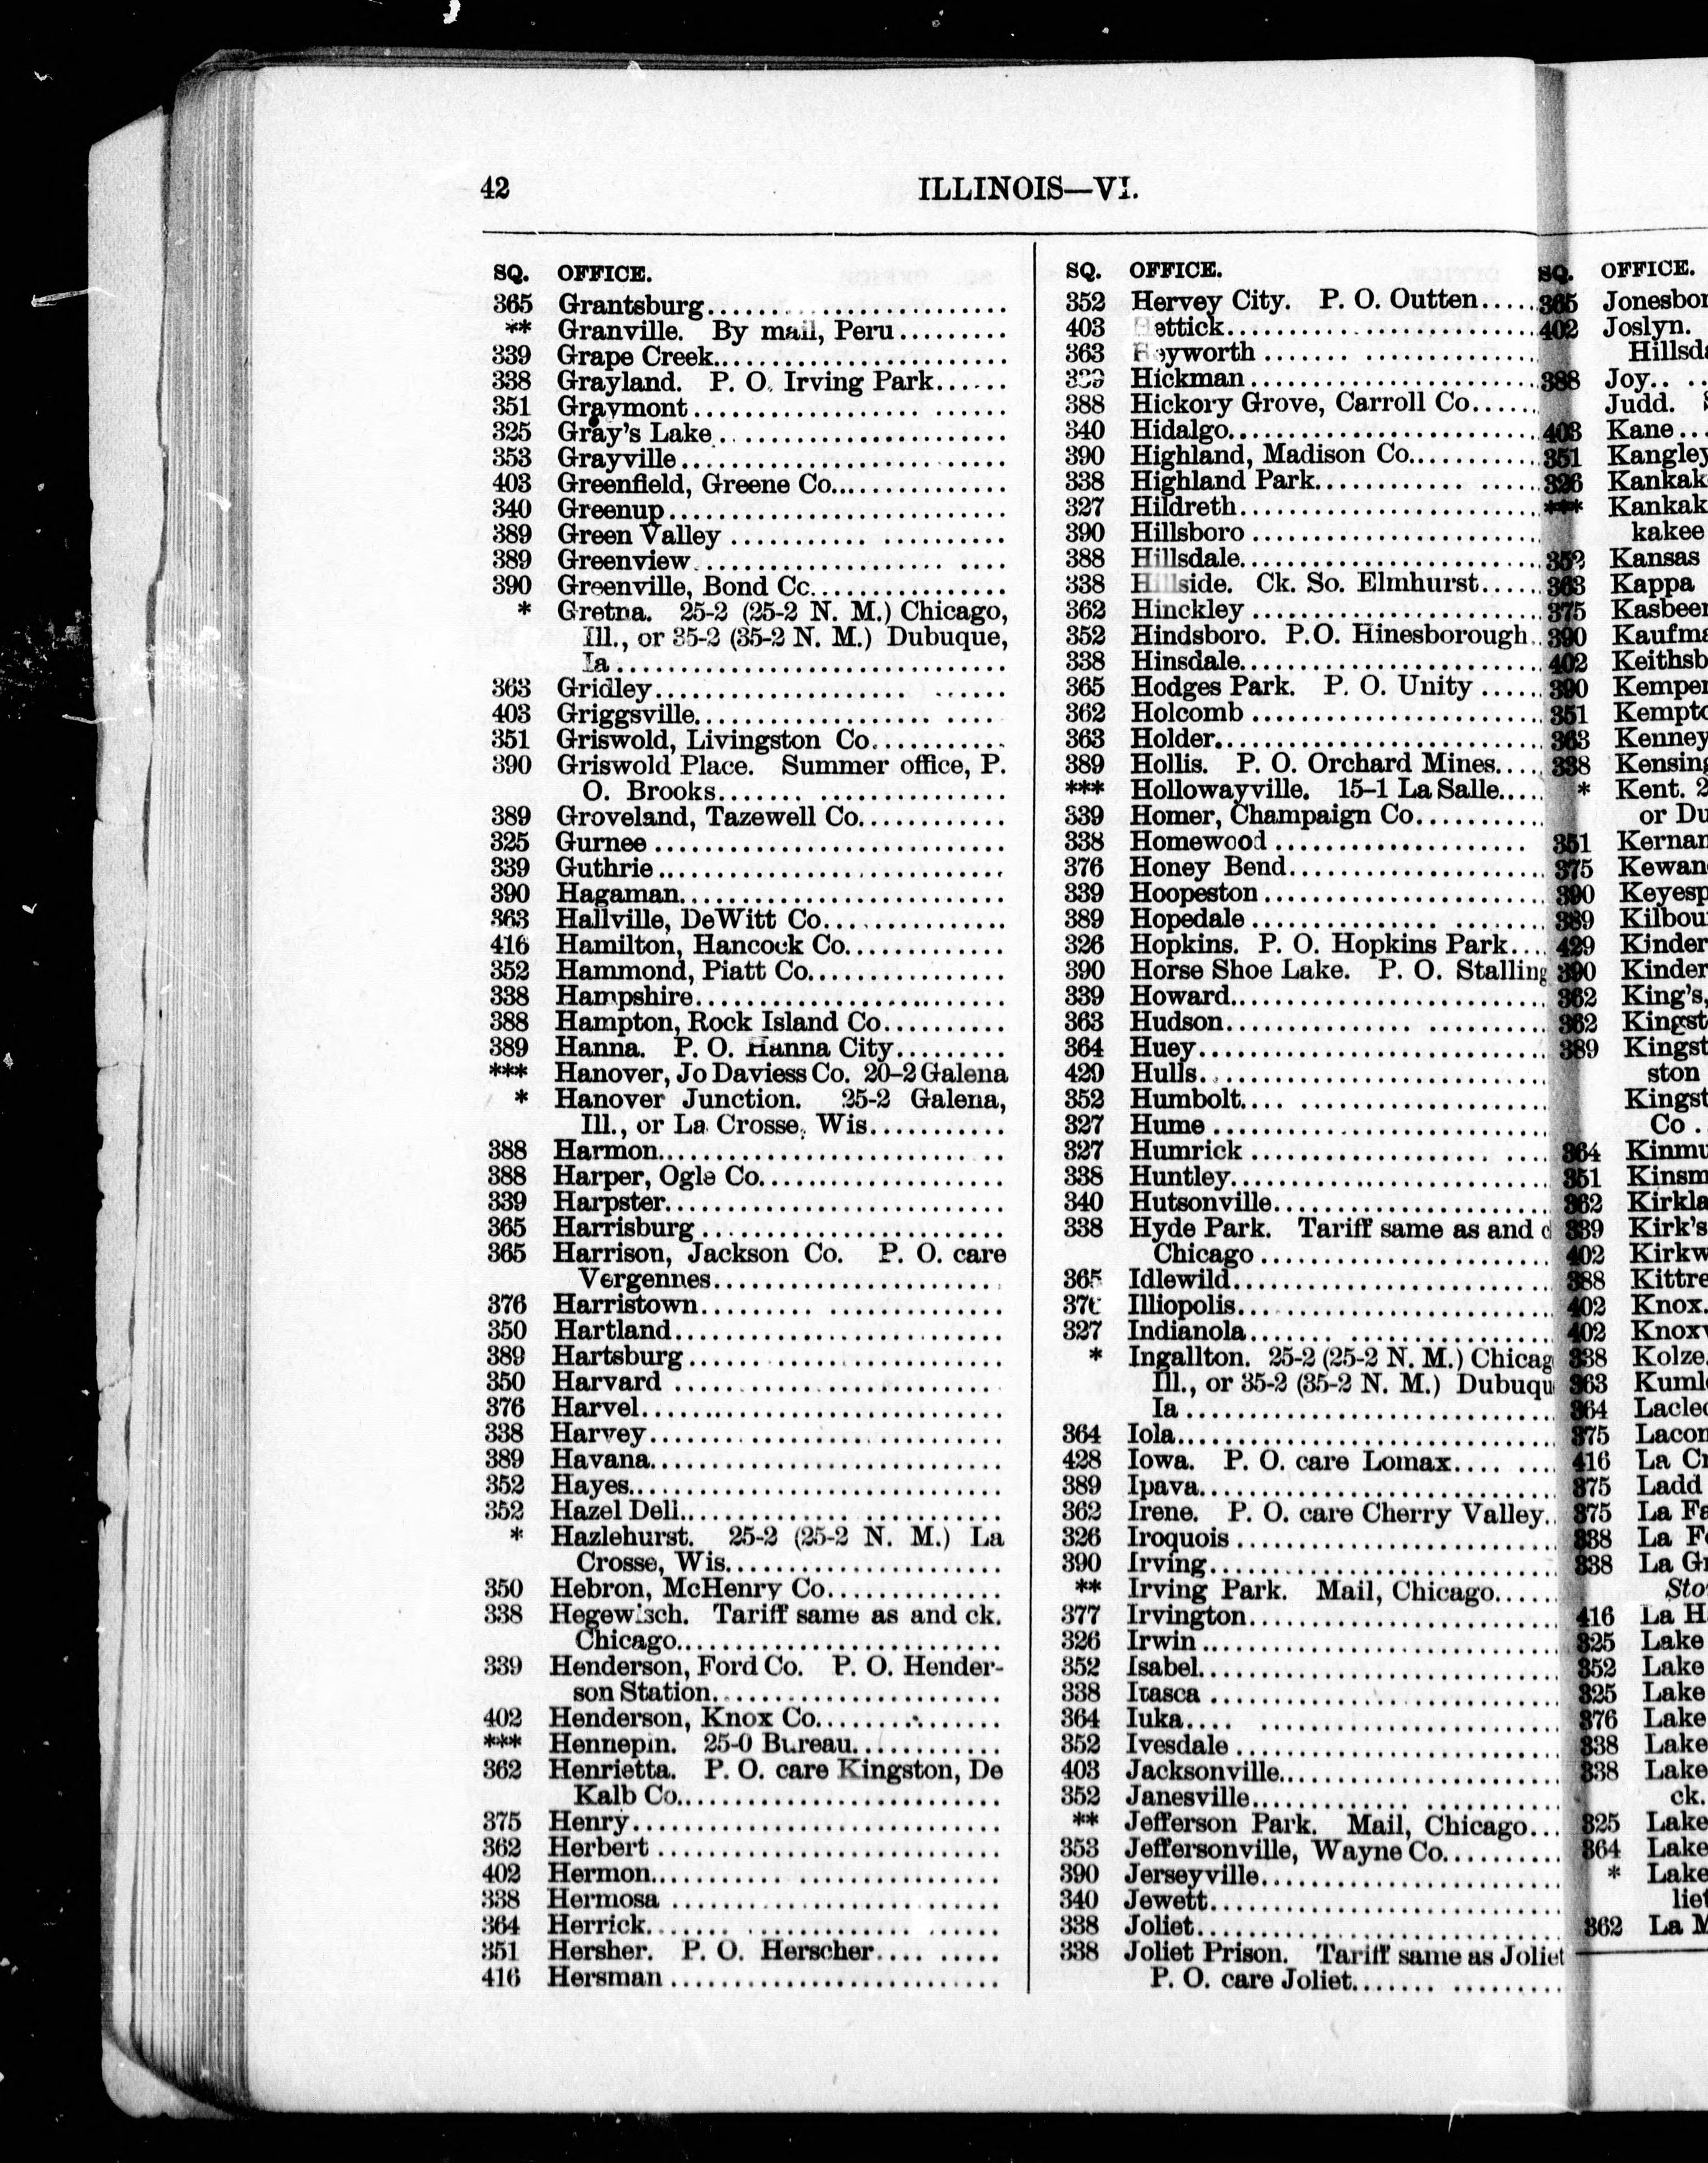 42
ILLINOIS—VI.
SQ. OFFICE.
365 Grantsburg
** Granville. By mail, Peru
339 Grape Creek
338 Grayland. P. O. Irving Park
351 Graymont
325 Gray's Lake
353 Grayville
403 Greenfield, Greene Co.
340 Greenup
389 Green Valley
389 Greenview
390 Greenville, Bond Co.
* Gretna. 25-2 (25-2 N. M.) Chicago,
Ill., or 35-2 (35-2 N. M.) Dubuque,
Ia
363 Gridley
403 Griggsville
351 Griswold, Livingston Co.
390 Griswold Place. Summer office, P.
O. Brooks
389 Groveland, Tazewell Co.
325 Gurnee
339 Guthrie
390 Hagaman
363 Hallville, DeWitt Co.
416 Hamilton, Hancock Co.
352 Hammond, Piatt Co.
338 Hampshire
388 Hampton, Rock Island Co.
389 Hanna. P. O. Hanna City
*** Hanover, Jo Daviess Co. 20-2 Galena
* Hanover Junction. 25-2 Galena,
Ill., or La Crosse, Wis.
388 Harmon
388 Harper, Ogle Co.
339 Harpster
365 Harrisburg
365 Harrison, Jackson Co. P. O. care
Vergennes
376 Harristown
350 Hartland
389 Hartsburg
350 Harvard
376 Harvel
338 Harvey
389 Havana
352 Hayes
352 Hazel Dell
* Hazlehurst. 25-2 (25-2 N. M.) La
Crosse, Wis.
350 Hebron, McHenry Co.
338 Hegewisch. Tariff same as and ck.
Chicago
339 Henderson, Ford Co. P. O. Hender-
son Station
402 Henderson, Knox Co.
*** Hennepin. 25-0 Bureau
362 Henrietta. P. O. care Kingston, De
Kalb Co.
375 Henry
362 Herbert
402 Hermon
338 Hermosa
364 Herrick
351 Hersher. P. O. Herscher
416 Hersman
SQ. OFFICE.
352 Hervey City. P. O. Outten
403 ettick
363 eyworth
Hickman
388 Hickory Grove, Carroll Co.
340 Hidalgo
390 Highland, Madison Co.
338 Highland Park
327 Hildreth
390 Hillsboro
388 Hillsdale
338 Hillside. Ck. So. Elmhurst
362 Hinckley
352 Hindsboro. P.O. Hinesborough
338 Hinsdale
365 Hodges Park. P. O. Unity
362 Holcomb
363 Holder
389 Hollis. P. O. Orchard Mines
*** Hollowayville. 15-1 La Salle
339 Homer, Champaign Co.
338 Homewood
376 Honey Bend
339 Hoopeston
389 Hopedale
326 Hopkins. P. O. Hopkins Park
390 Horse Shoe Lake. P. O. Stalling
339 Howard
363 Hudson
364 Huey
429 Hulls
352 Humbolt
327 Hume
327 Humrick
338 Huntley
340 Hutsonville
338 Hyde Park. Tariff same as and c
Chicago
365 Idlewild
376 Illiopolis
327 Indianola
* Ingallton. 25-2 (25-2 N. M.) Chicag
Ill., or 35-2 (35-2 N. M.) Dubuqu
Ia
364 Iola
428 Iowa. P. O. care Lomax
389 Ipava
362 Irene. P. O. care Cherry Valley
326 Iroquois
390 Irving
** Irving Park. Mail, Chicago
377 Irvington
326 Irwin
352 Isabel
338 Itasca
364 Iuka
352 Ivesdale
403 Jacksonville
352 Janesville
** Jefferson Park. Mail, Chicago
353 Jeffersonville, Wayne Co.
390 Jerseyville
340 Jewett
338 Joliet
338 Joliet Prison. Tariff same as Joliet
P. O. care Joliet
SQ. OFFICE.
365 Jonesbor
402 Joslyn.
Hillsda
388 Joy
Judd.
403 Kane
351 Kangley
326 Kankak
*** Kankak
kakee
352 Kansas
363 Kappa
375 Kasbeer
390 Kaufma
402 Keithsb
390 Kemper
351 Kempto
363 Kenney
338 Kensing
* Kent. 2
or Du
351 Kernan
375 Kewan
390 Keyesp
389 Kilbou
429 Kinder
390 Kinder
362 King's,
362 Kingst
389 Kingst
ston
Kingst
Co
364 Kinmu
351 Kinsm
362 Kirkla
339 Kirk's
402 Kirkw
388 Kittre
402 Knox
402 Knoxv
338 Kolze
363 Kuml
364 Lacled
375 Lacon
416 La C
375 Ladd
375 La Fa
338 La F
338 La Gr
Sto
416 La H
325 Lake
352 Lake
325 Lake
376 Lake
338 Lake
338 Lake
ck.
325 Lake
364 Lake
* Lake
liet
362 La M